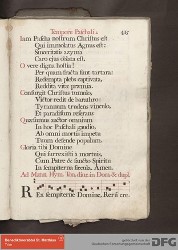 Tempore Paschali.
Iam Pascha nostrum Christus est
Qui immolatus Agnus est:
Sinceritatis azyma
Caro ejus oblata est.
O vere digna hostia!
Per quam fracta sunt tartara:
Redempta plebs captivata,
Reddita vitæ præmia.
Consurgit Christus tumulo,
Victor redit de barathro:
Tyrannum trudens vinculo,
Et paradisum reserans
Quæsumus auctor omnium
In hoc Paschali gaudio,
Ab omni mortis impetu
Tuum defende populum.
Gloria tibi Domine
Qui surrexisti a mortuis,
Cum Patre & sancto Spiritu
In sempiterna sæcula. Amen.
Rex sempiterne Domine, Rerum cre-
DFG